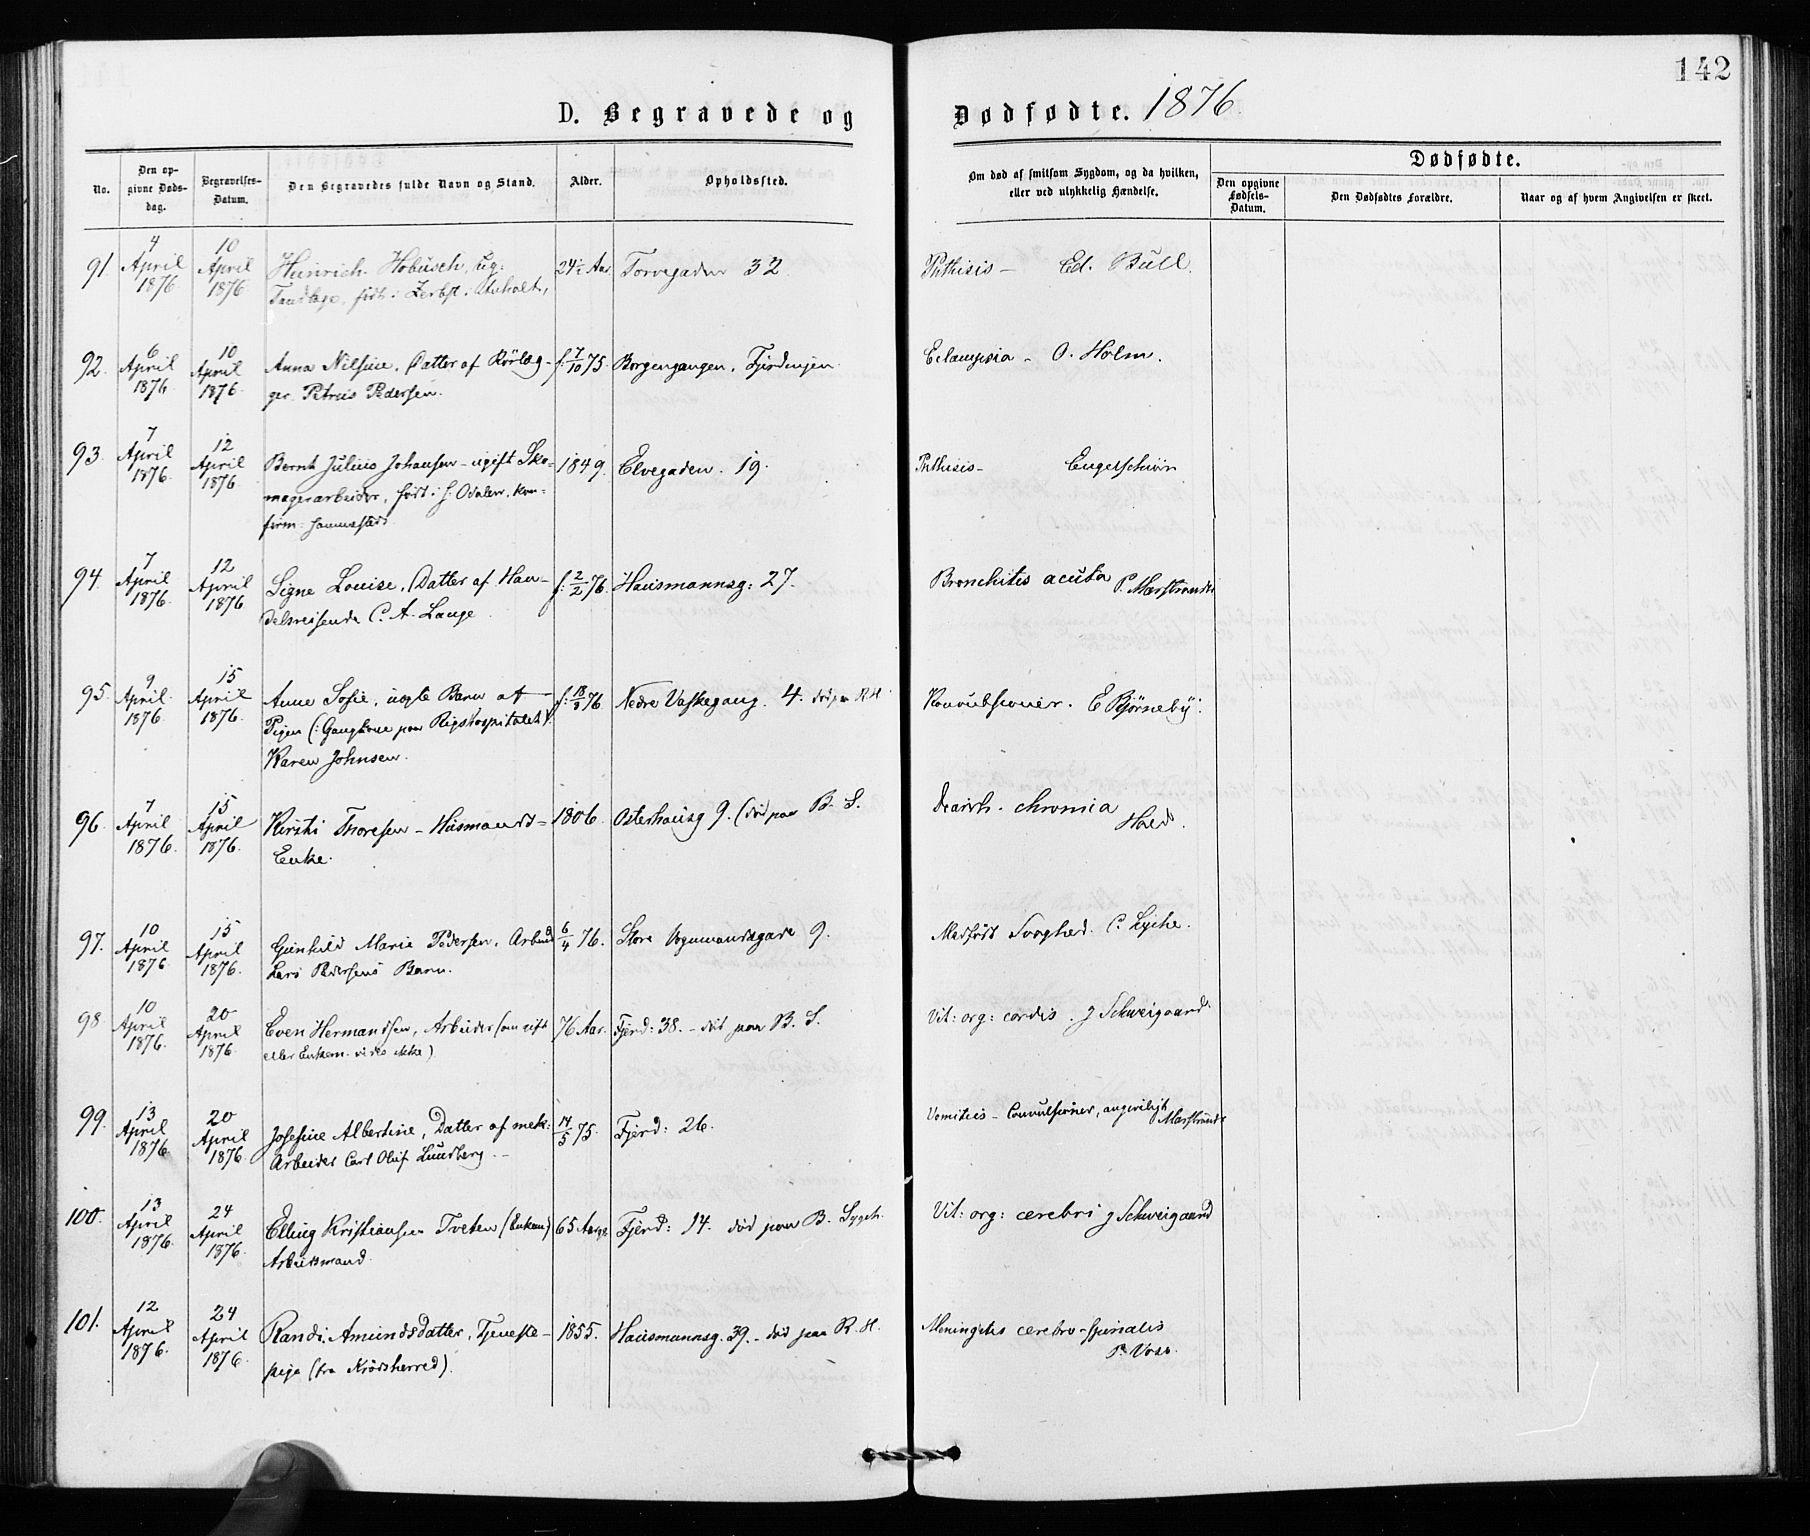 142
D. Begravede og Dødfødte. 1876.
No.
Den opgivne Døds-
dag.
Begravelses-
Datum.
Den Begravedes fulde Navn og Stand.
Alder.
Opholdssted.
Om død af smitsom Sygdom, og da hvilken,
eller ved ulykkelig Hændelse.
Dødfødte.
Den opgivne
Fødsels-
Datum.
Den Dødfødtes Forældre.
Naar og af hvem Angivelsen er skeet.
91. 4 April 1876 10 April 1876 Heinrich Hobusch, ug: 24½ Aar Torvegaden 32 Phthisis – Ed. Bull.
Tandlæge, født i Zerbst i Anholt,
92. 6 April 1876 10 April 1876 Anna Nilsine, Datter af Rörlæg- f: 7/10 75. Borgengangen, Fjerdingen Eclampsia – O. Holm.
ger Petrus Pedersen.
93. 7 April 1876. 12 April 1876. Bernt Julius Johansen – ugift Sko- 1849. Elvegaden. 19. Phthisis – Engelschiön
magerarbeider, født i S: Odalen, kon-
firm: sammesteds
94. 7 April 1876. 12 April 1876 Signe Louise, Datter af Han- f: 2/2 76. Hausmannsg: 27. Bronchitis acuta P. Marstrander
delsreisende C. A. Lange.
95. 9 April 1876. 15 April 1876. Anne Sofie, uægte Barn af f: 18/3 76. Nedre Vaskegang. 4. död paa R.H. Konvulsioner. E Bjørneby.
Pigen (: Gangkone paa Rigshospitalet)
Karen Johnsen.
96. 7 April 1876. 15 April 1876. Kirsti Thoresen – Husmands- 1806. Osterhausg 9. (död paa B. S. Diarrh. chronica Hald.
Enke.
97. 10 April 1876. 15 April 1876. Gunhild Marie Pedersen, Arbeid 6/4 76. Store Vognmandsgade 9. Medfödt Svaghed. C. Lyche.
Lars Pedersens Barn.
98. 10 April 1876. 20 April 1876. Even Hermandsen, Arbeider (om gift 76 Aar. Fjerd: 38. – död paa B. S. Vit: org: cordis. J Schweigaard.
eller Enkem. vides ikke)
99. 13 April 1876. 20 April 1876. Josefine Albertine, Datter af mek: 14/5 75. Fjerd: 26. Vomitus – Convulsioner, angiveligt Marstrander
Arbeider Carl Oluf Lundberg. –
100. 13 April 1876. 24 April 1876. Elling Kristiansen Tveten (Enkem) 65 Aar. Fjerd: 14. död paa B. Sygeh. Vit: org: cerebri J Schweigaard
Arbeidsmand.
101. 12 April 1876. 24 April 1876. Randi Amundsdatter, Tjeneste- 1855. Hausmannsg. 39. – död paa R. H. Meningitis cerebro-spinalis
pige (fra Krödsherred). P. Voss.